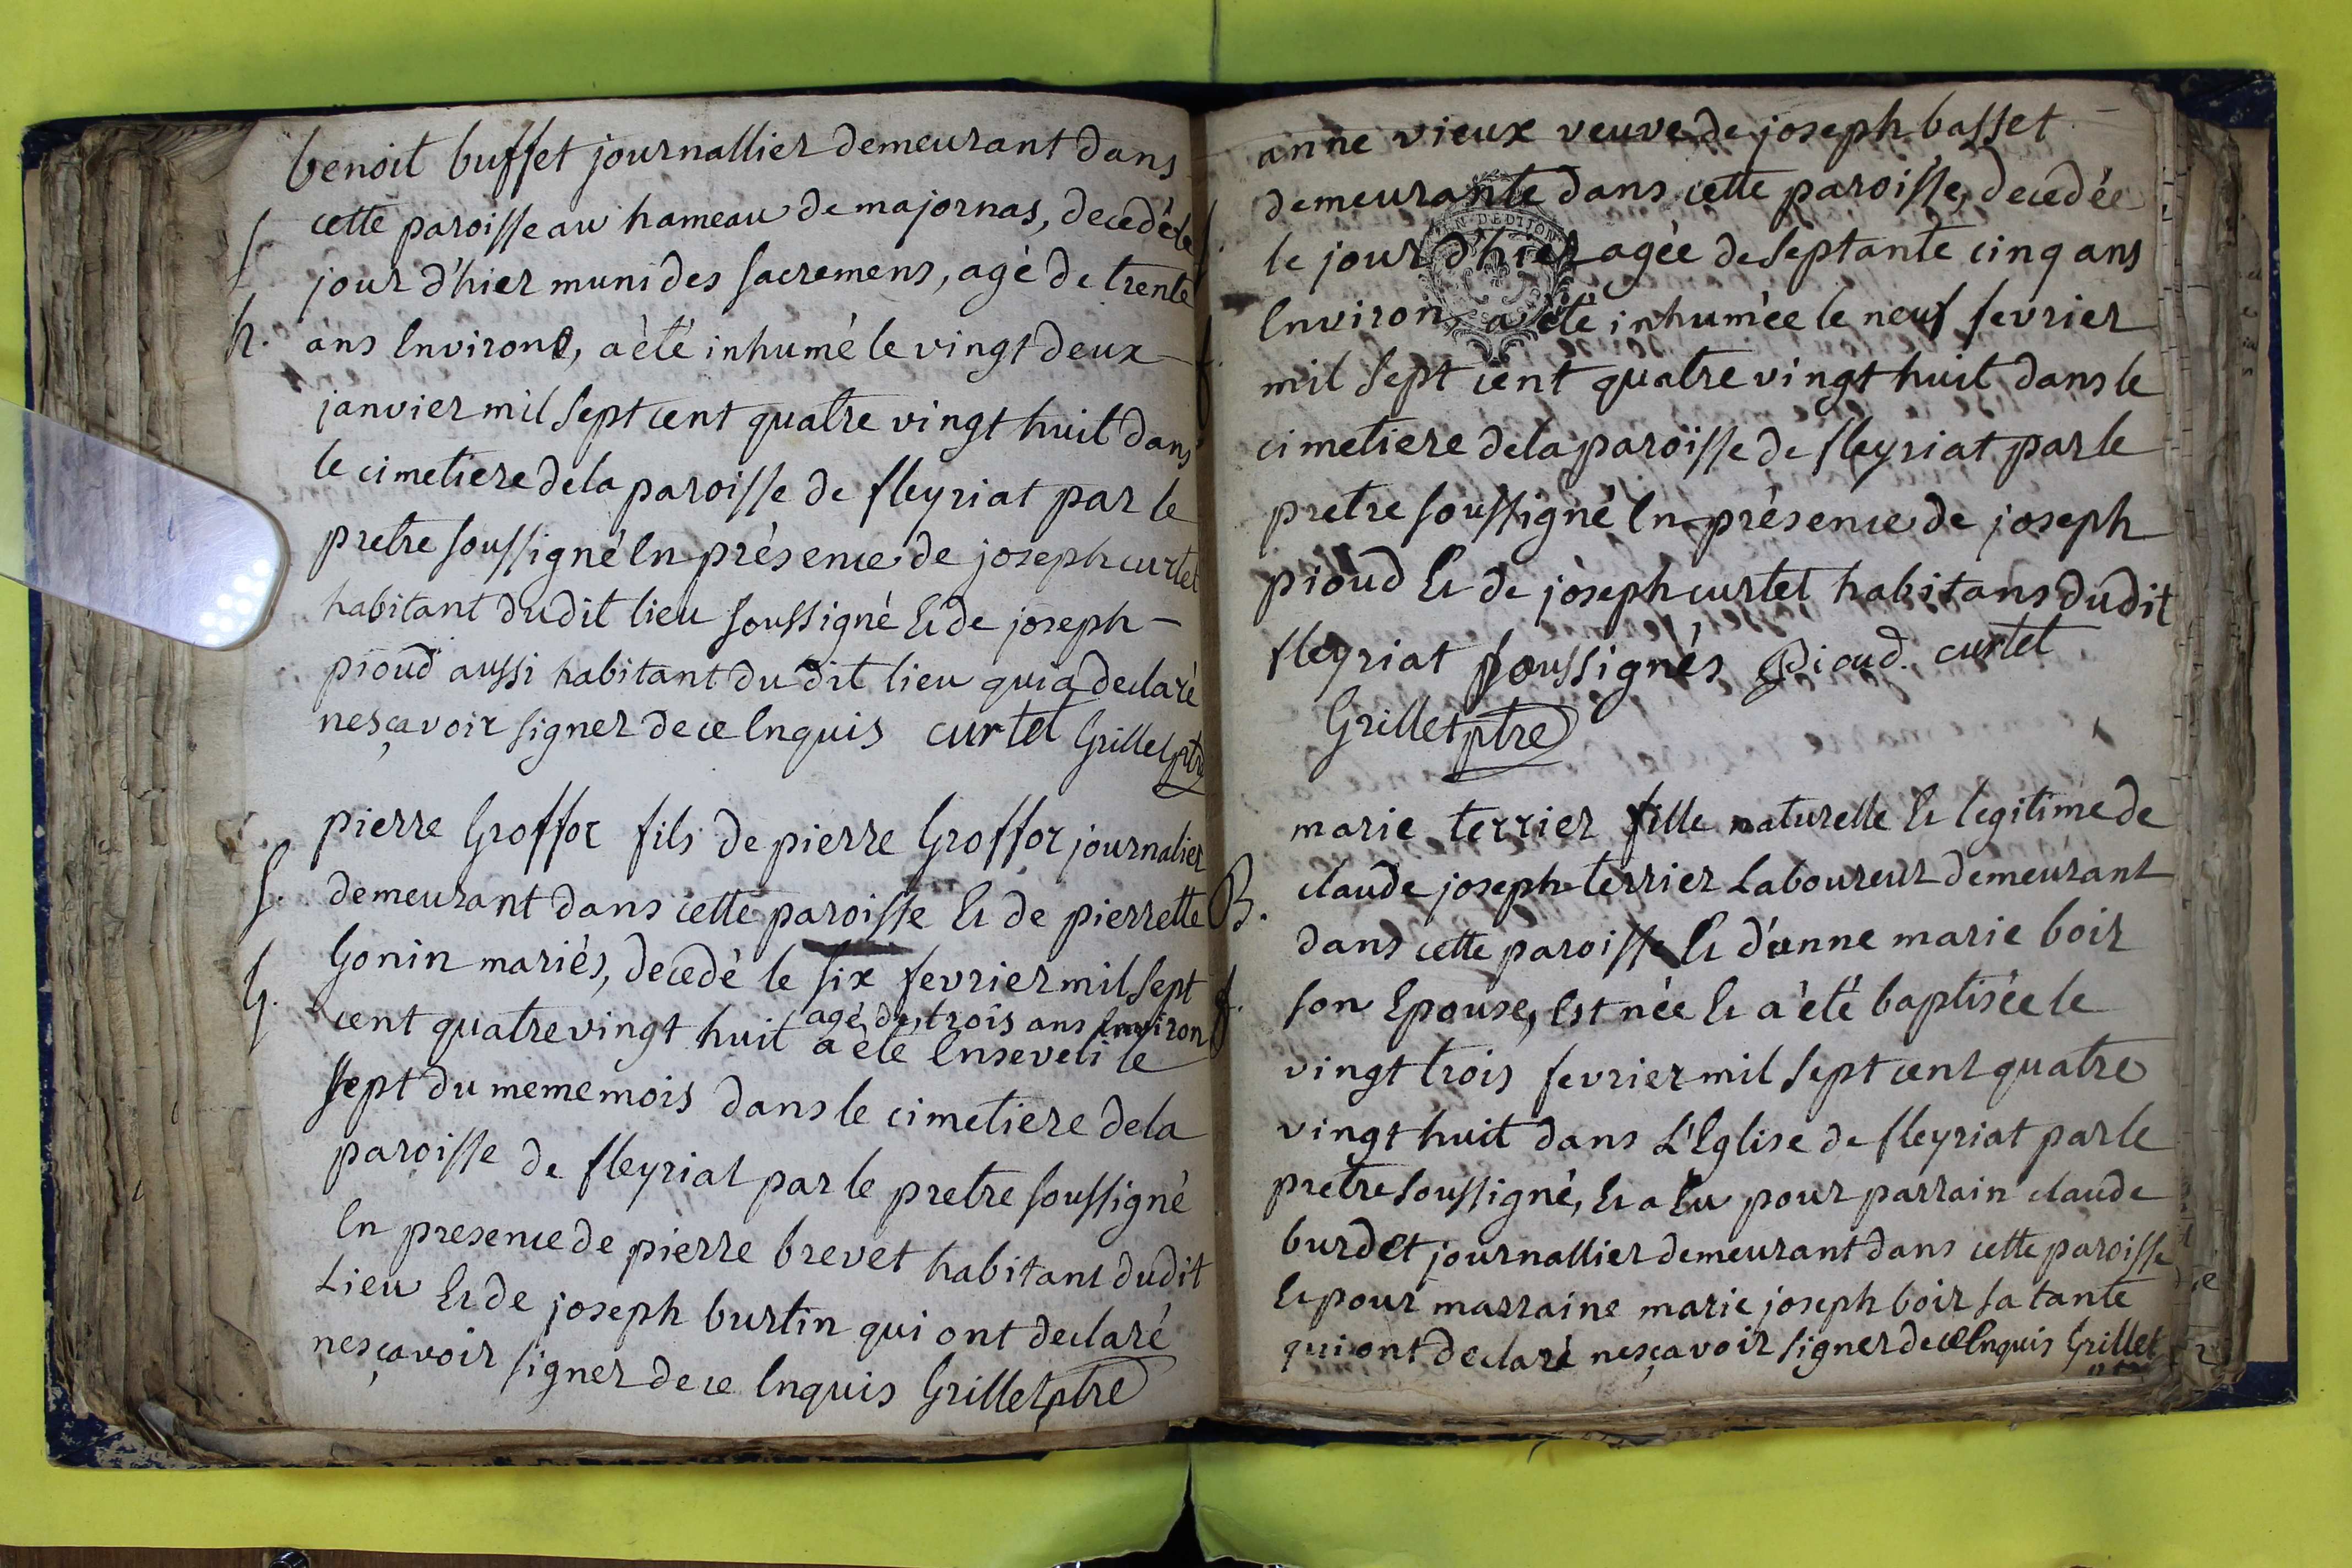 benoit buffet journallier demeurant dans
cette paroisse au hameau de majornas, decedé le
S.
jour d'hier muni des sacremens, agé de trente
h.
ans Environs, a été inhumé le vingt deux
janvier mil sept cent quatre vingt huit dans
le cimetiere dela paroisse de fleyriat par le
pretre soussigné En présence de joseph curtet
habitant dudit lieu soussigné Et de joseph
pioud aussi habitant du dit lieu qui a declaré
nesçavoir signer de ce Enquis curtet Grillet ptre
pierre Groffoz fils de pierre Groffoz journalier
S.
demeurant dans cette paroisse Et de pierrette
Gonin mariés, decedé le six fevrier mil sept
h.
agé de trois ans Environ
cent quatre vingt huit a été Enseveli le
sept du meme mois dans le cimetiere dela
paroisse de fleyriat par le pretre soussigné
En presence de pierre brevet habitant dudit
Lieu Et de joseph burtin qui ont declaré
nesçavoir signer de ce Enquis Grillet ptre
anne vieux veuve de joseph basset
demeurante dans cette paroisse, decedée
le jour d'hier agée de septante cinq ans
Environ a été inhumée le neuf fevrier
mil sept cent quatre vingt huit dans le
cimetiere dela paroisse de fleyriat par le
pretre soussigné En présence de joseph
pioud Et de joseph curtet habitans dudit
fleyriat soussignés Pioud. curtet
Grillet ptre
marie terrier fille naturelle Et legitime de
claude joseph terrier Laboureur demeurant
B.
dans cette paroisse Et d'anne marie boir
son Epouse, Est née Et a été baptisée le
f.
vingt trois fevrier mil sept cent quatre
vingt huit dans L'Eglise de fleyriat par le
pretre soussigné, Et a Eu pour parrain claude
burdet journallier demeurant dans cette paroisse
Et pour marraine marie joseph boir sa tante
qui ont declaré nesçavoir signer de ce Enquis Grillet